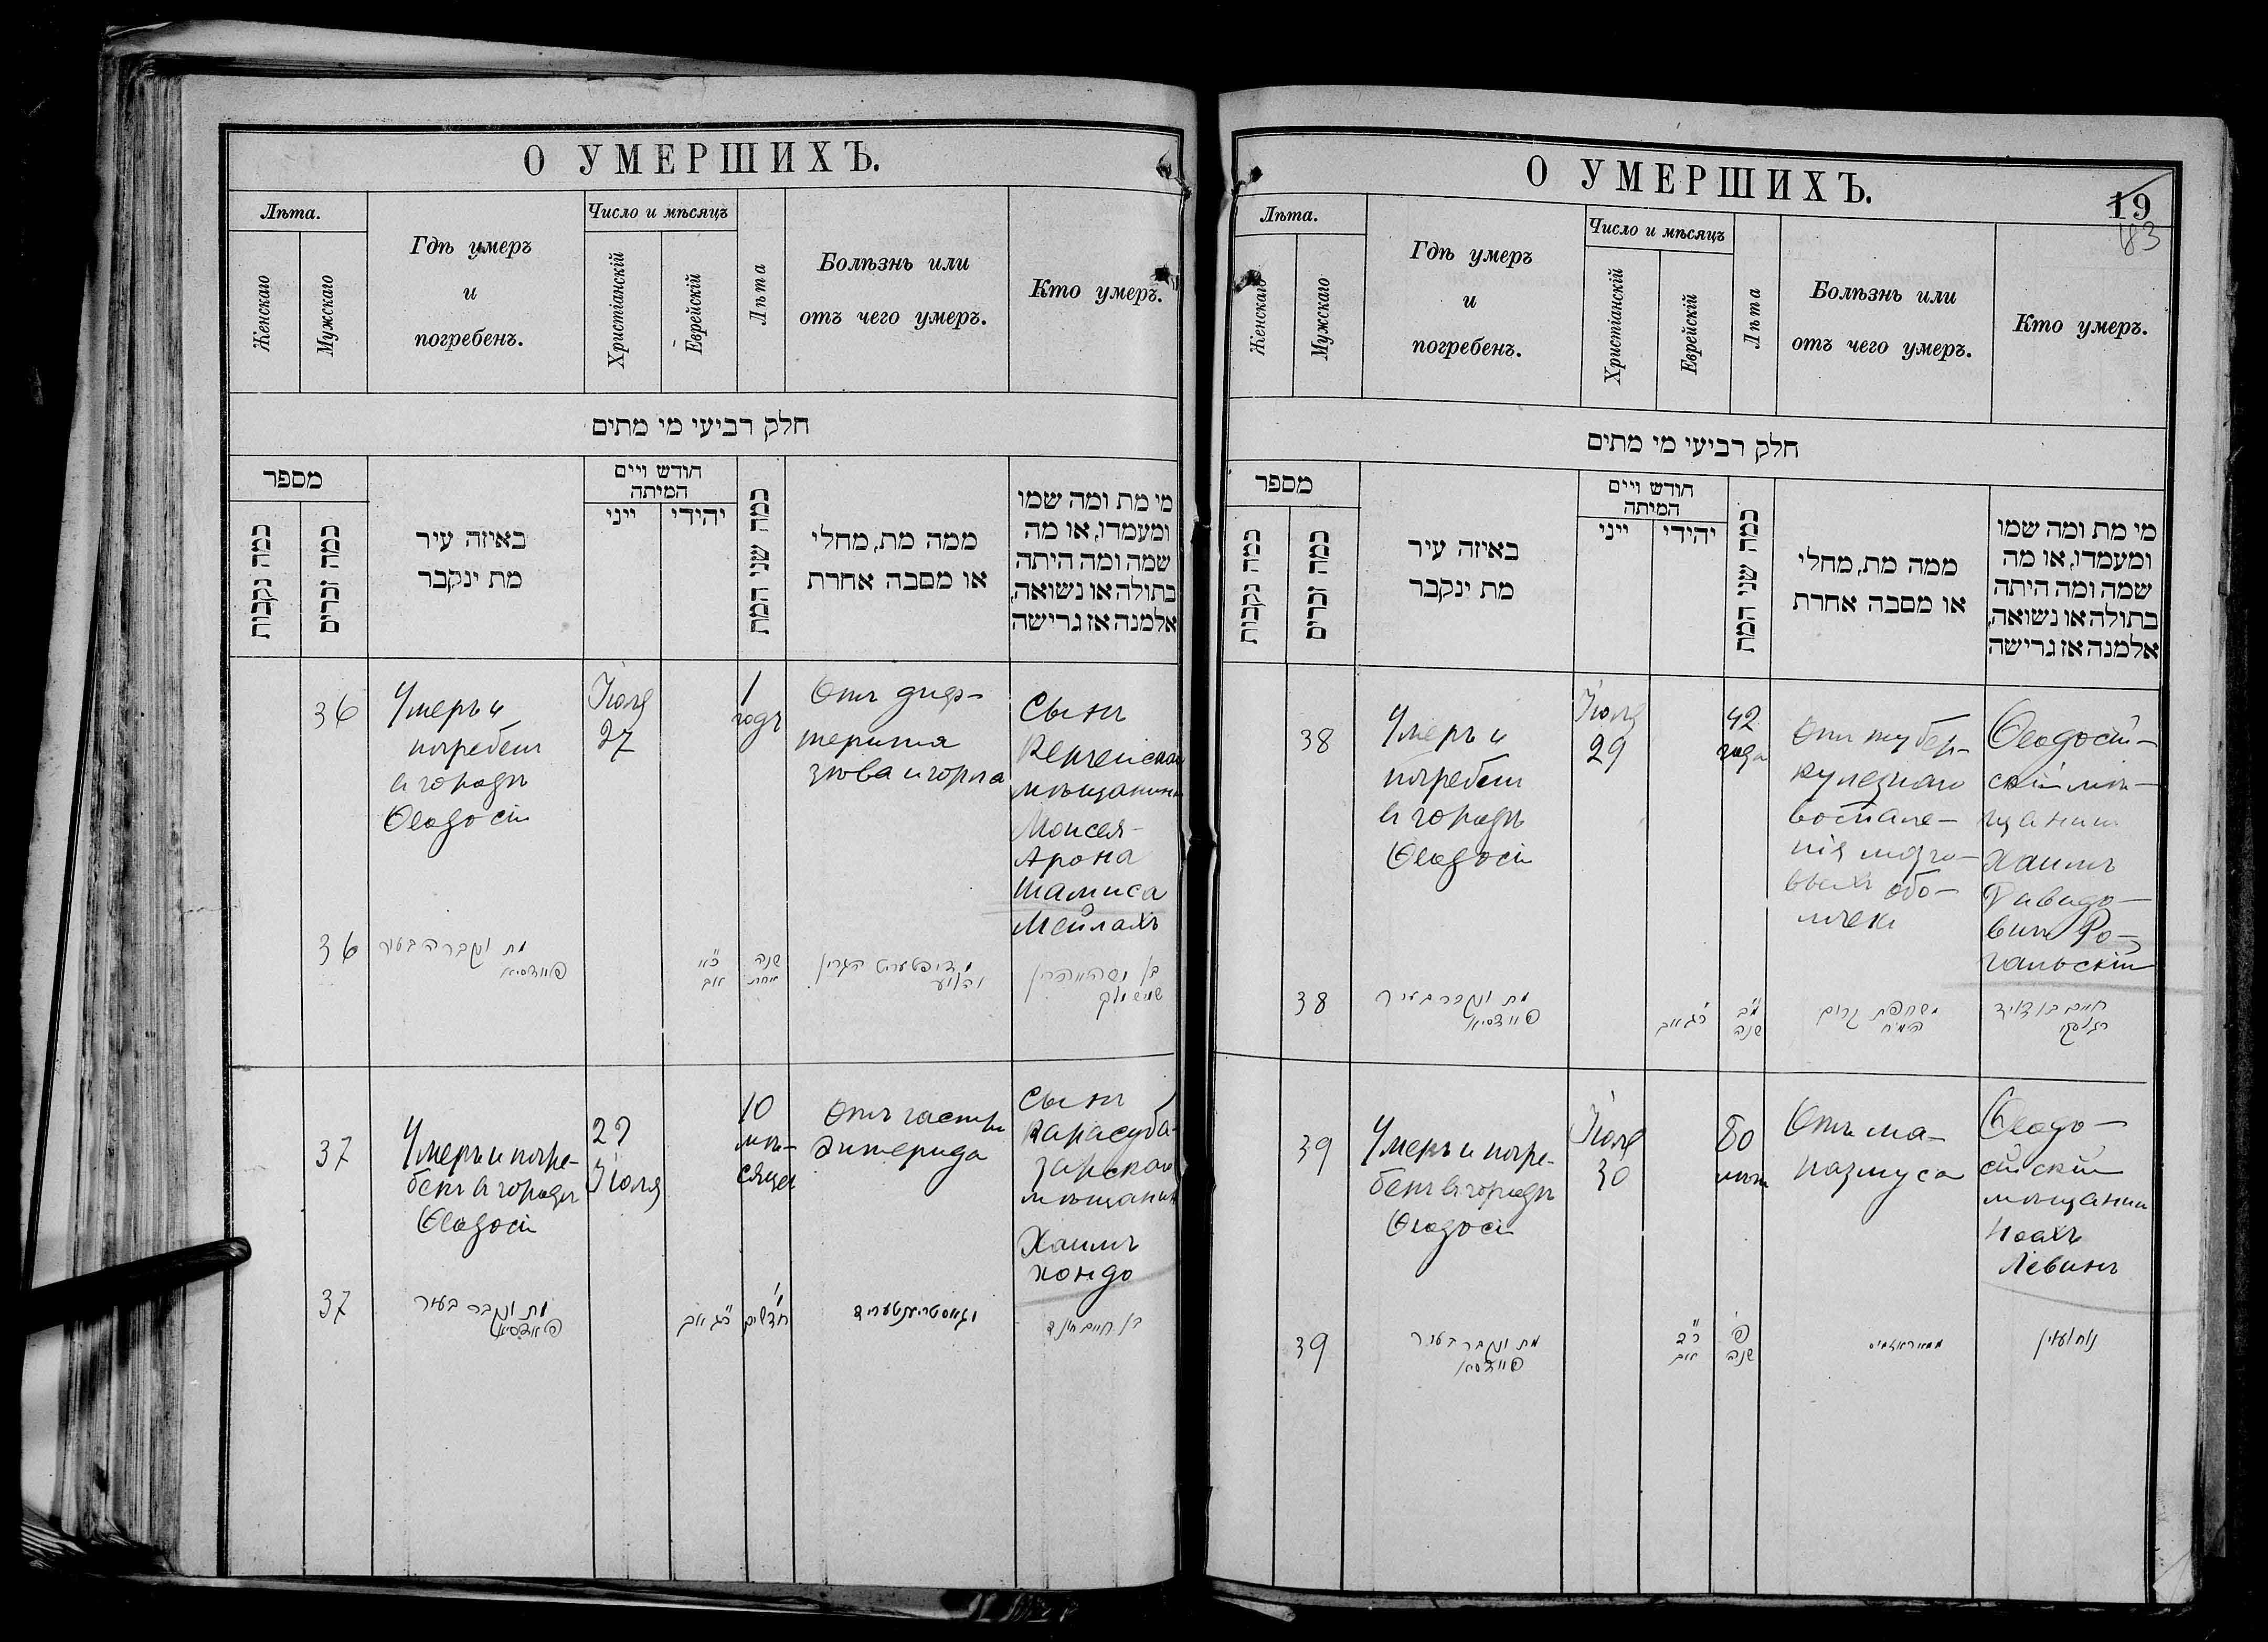 О УМЕРШИХЪ.
Лѣта.
Женскаго
Мужскаго
Гдѣ умеръ
и
погребенъ.
Число и мѣсяцъ
Христіанскій
Еврейскій
Лѣта
Болѣзнь или
отъ чего умеръ.
Кто умеръ.
חלק רביעי מי מתים
מספר
כמה נקבות
כמה זכרים
באיזה עיר
מת ינקבר
חודש ויים
המיתה
ייני
יהידי
כמה שני המת
ממה מת, מחלי
או מסבה אחרת
מי מת ומה שמו
ומעמדו, או מה
שמה ומה היתה
בתולה או נשואה,
אלמנה אז גרישה
36
Умеръ и
погребенъ
въ городѣ
Ѳеодосіи
Іюля
27
1
годъ
Отъ диф-
терита
зѣва и горла
Сынъ
Керченскаго
мѣщанина
Моисея-
Арона
Шамиса
Мейлахъ
36
מת ונקבר בעיר
פיאדסיא
כ״א
אב
שנה
אחת
37
Умеръ и погре-
бенъ въ городѣ
Ѳеодосіи
29
Іюля
10
мѣ-
сяцев
Отъ гастро
энтерида
Сынъ
Карасуба-
зарскаго
мѣщанина
Хаимъ
Хондо
37
מת ונקבר בעיר
פיאדסיא
כ״ג אב
י׳
חדשים
О УМЕРШИХЪ.
19
83
Лѣта.
Женскаго
Мужскаго
Гдѣ умеръ
и
погребенъ.
Число и мѣсяцъ
Христіанскій
Еврейскій
Лѣта
Болѣзнь или
отъ чего умеръ.
Кто умеръ.
חלק רביעי מי מתים
מספר
כמה נקבות
כמה זכרים
באיזה עיר
מת ינקבר
חודש ויים
המיתה
ייני
יהידי
כמה שני המת
ממה מת, מחלי
או מסבה אחרת
מי מת ומה שמו
ומעמדו, או מה
שמה ומה היתה
בתולה או נשואה,
אלמנה אז גרישה
38
Умеръ и
погребенъ
въ городѣ
Ѳеодосіи
Іюля
29
42
года
Отъ тубер-
кулезнаго
воспале-
нія мозго-
выхъ обо-
лочекъ
Ѳеодосій-
скій мѣ-
щанинъ
Хаимъ
Давидо-
вичъ Ро-
гальскій
38
מת ונקבר בעיר
פיאדסיא
כ״ג אב
מ״ב
שנה
חיים בן דוד
39
Умеръ и погре-
бенъ въ городѣ
Ѳеодосіи
Іюля
30
80
лѣтъ
Отъ ма-
размуса
Ѳеодо-
сійскій
мѣщанинъ
Ноахъ
Левинъ
39
מת ונקבר בעיר
פיאדסיא
כ״ד
אב
פ׳
שנה
נח לעווין